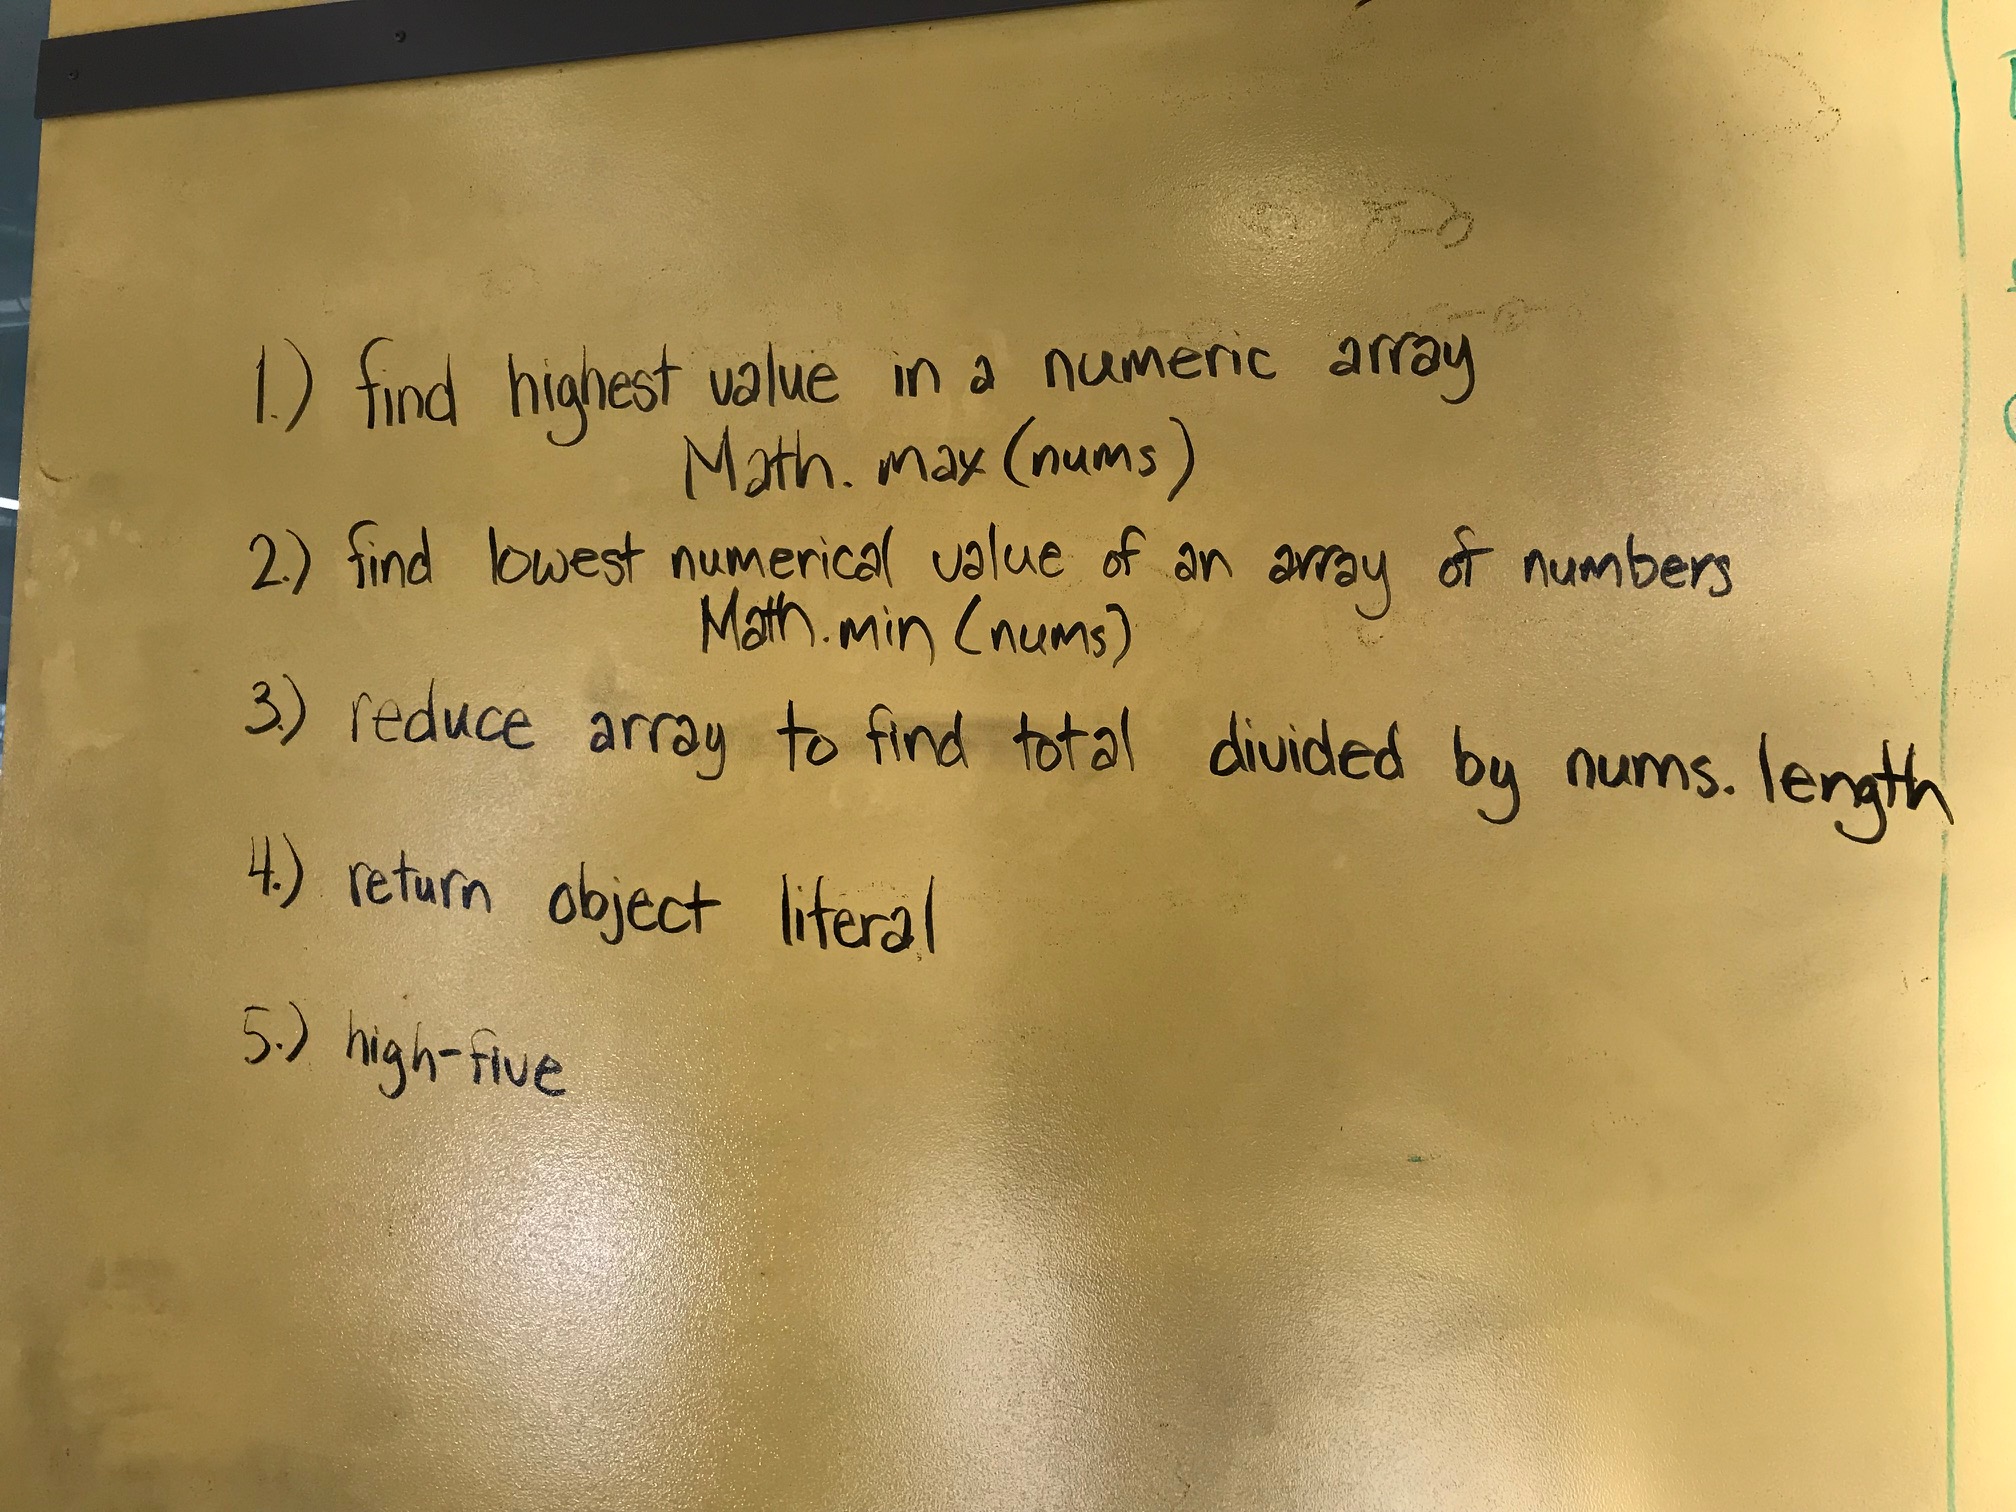 1.) find highest value in a numeric array
Math.max(nums)
2.) find lowest numerical value of an array of numbers
Math.min(nums)
3.) reduce array to find total divided by nums.length
4.) return object literal
5.) high-five